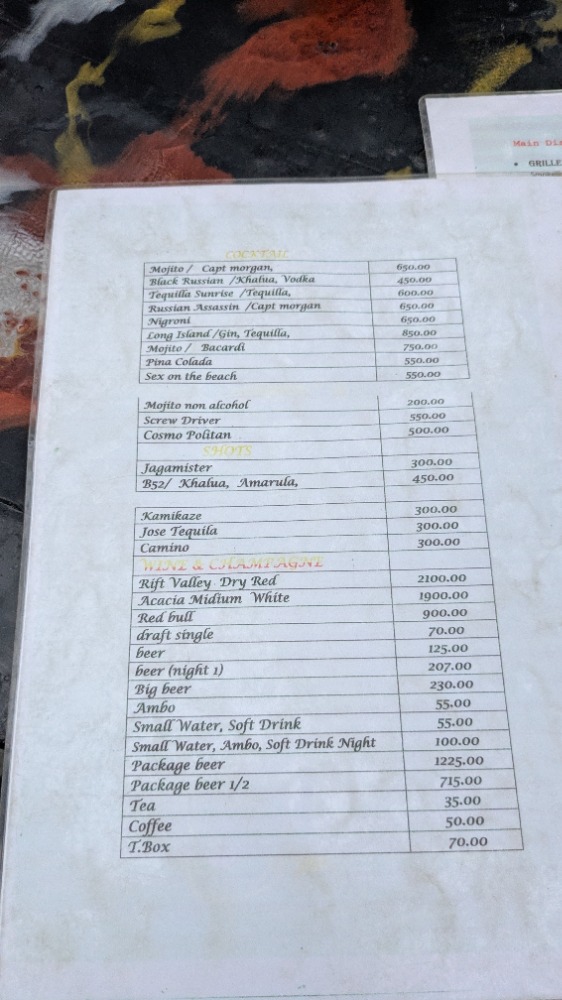 Main Din
• GRILLE
COCKTAIL
Mojito / Capt morgan, 650.00
Black Russian /Khalua, Vodka 450.00
Tequilla Sunrise /Tequilla, 600.00
Russian Assassin /Capt morgan 650.00
Nigroni 650.00
Long Island /Gin, Tequilla, 850.00
Mojito / Bacardi 750.00
Pina Colada 550.00
Sex on the beach 550.00
Mojito non alcohol 200.00
Screw Driver 550.00
Cosmo Politan 500.00
SHOTS
Jagamister 300.00
B52/ Khalua, Amarula, 450.00
Kamikaze 300.00
Jose Tequila 300.00
Camino 300.00
WINE & CHAMPAGNE
Rift Valley Dry Red 2100.00
Acacia Midium White 1900.00
Red bull 900.00
draft single 70.00
beer 125.00
beer (night 1) 207.00
Big beer 230.00
Ambo 55.00
Small Water, Soft Drink 55.00
Small Water, Ambo, Soft Drink Night 100.00
Package beer 1225.00
Package beer 1/2 715.00
Tea 35.00
Coffee 50.00
T.Box 70.00